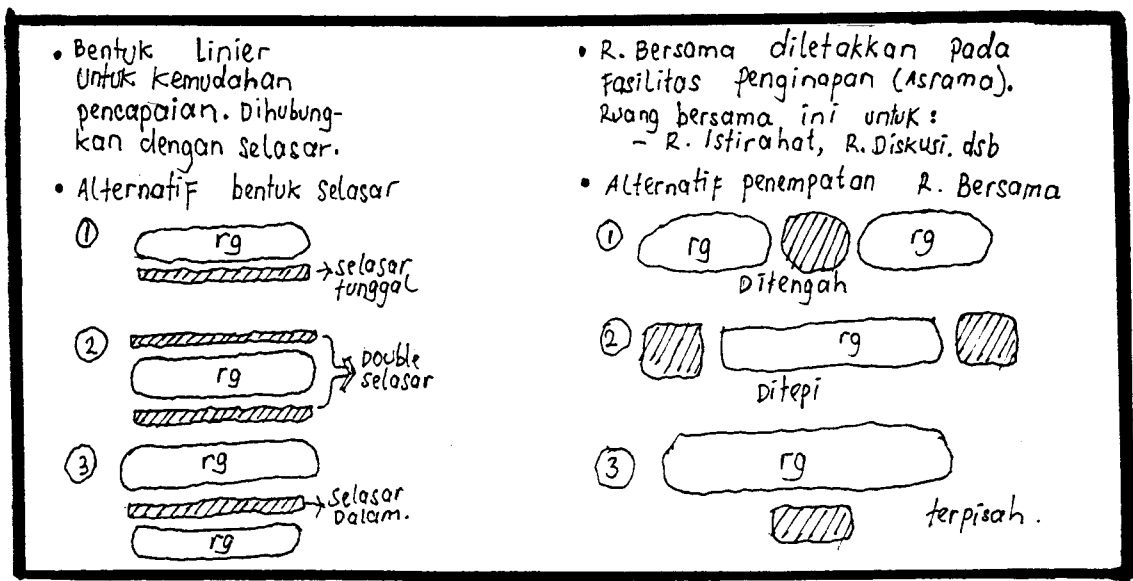 • Bentuk Linier
untuk kemudahan
pencapaian. Dihubung-
kan dengan selasar.
• Alternatif bentuk selasar
① rg
→ selasar
tunggal
② rg
Double
selasar
③ rg
→ selasar
Dalam.
rg
• R. Bersama diletakkan pada
Fasilitas penginapan (Asrama).
Ruang bersama ini untuk :
- R. Istirahat, R. Diskusi. dsb
• Alternatif penempatan R. Bersama
① rg rg
Ditengah
② rg
Ditepi
③ rg
terpisah.